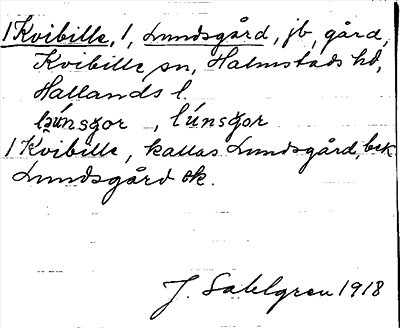 1 Kvibille, 1, Lundsgård, jb, gård,
Kvibille sn, Halmstads hd,
Hallands l.
lúnsgor, lúnsgor
1 Kvibille, kallas Lundsgård, bek.
Lundsgård ok.
J. Sahlgren 1918